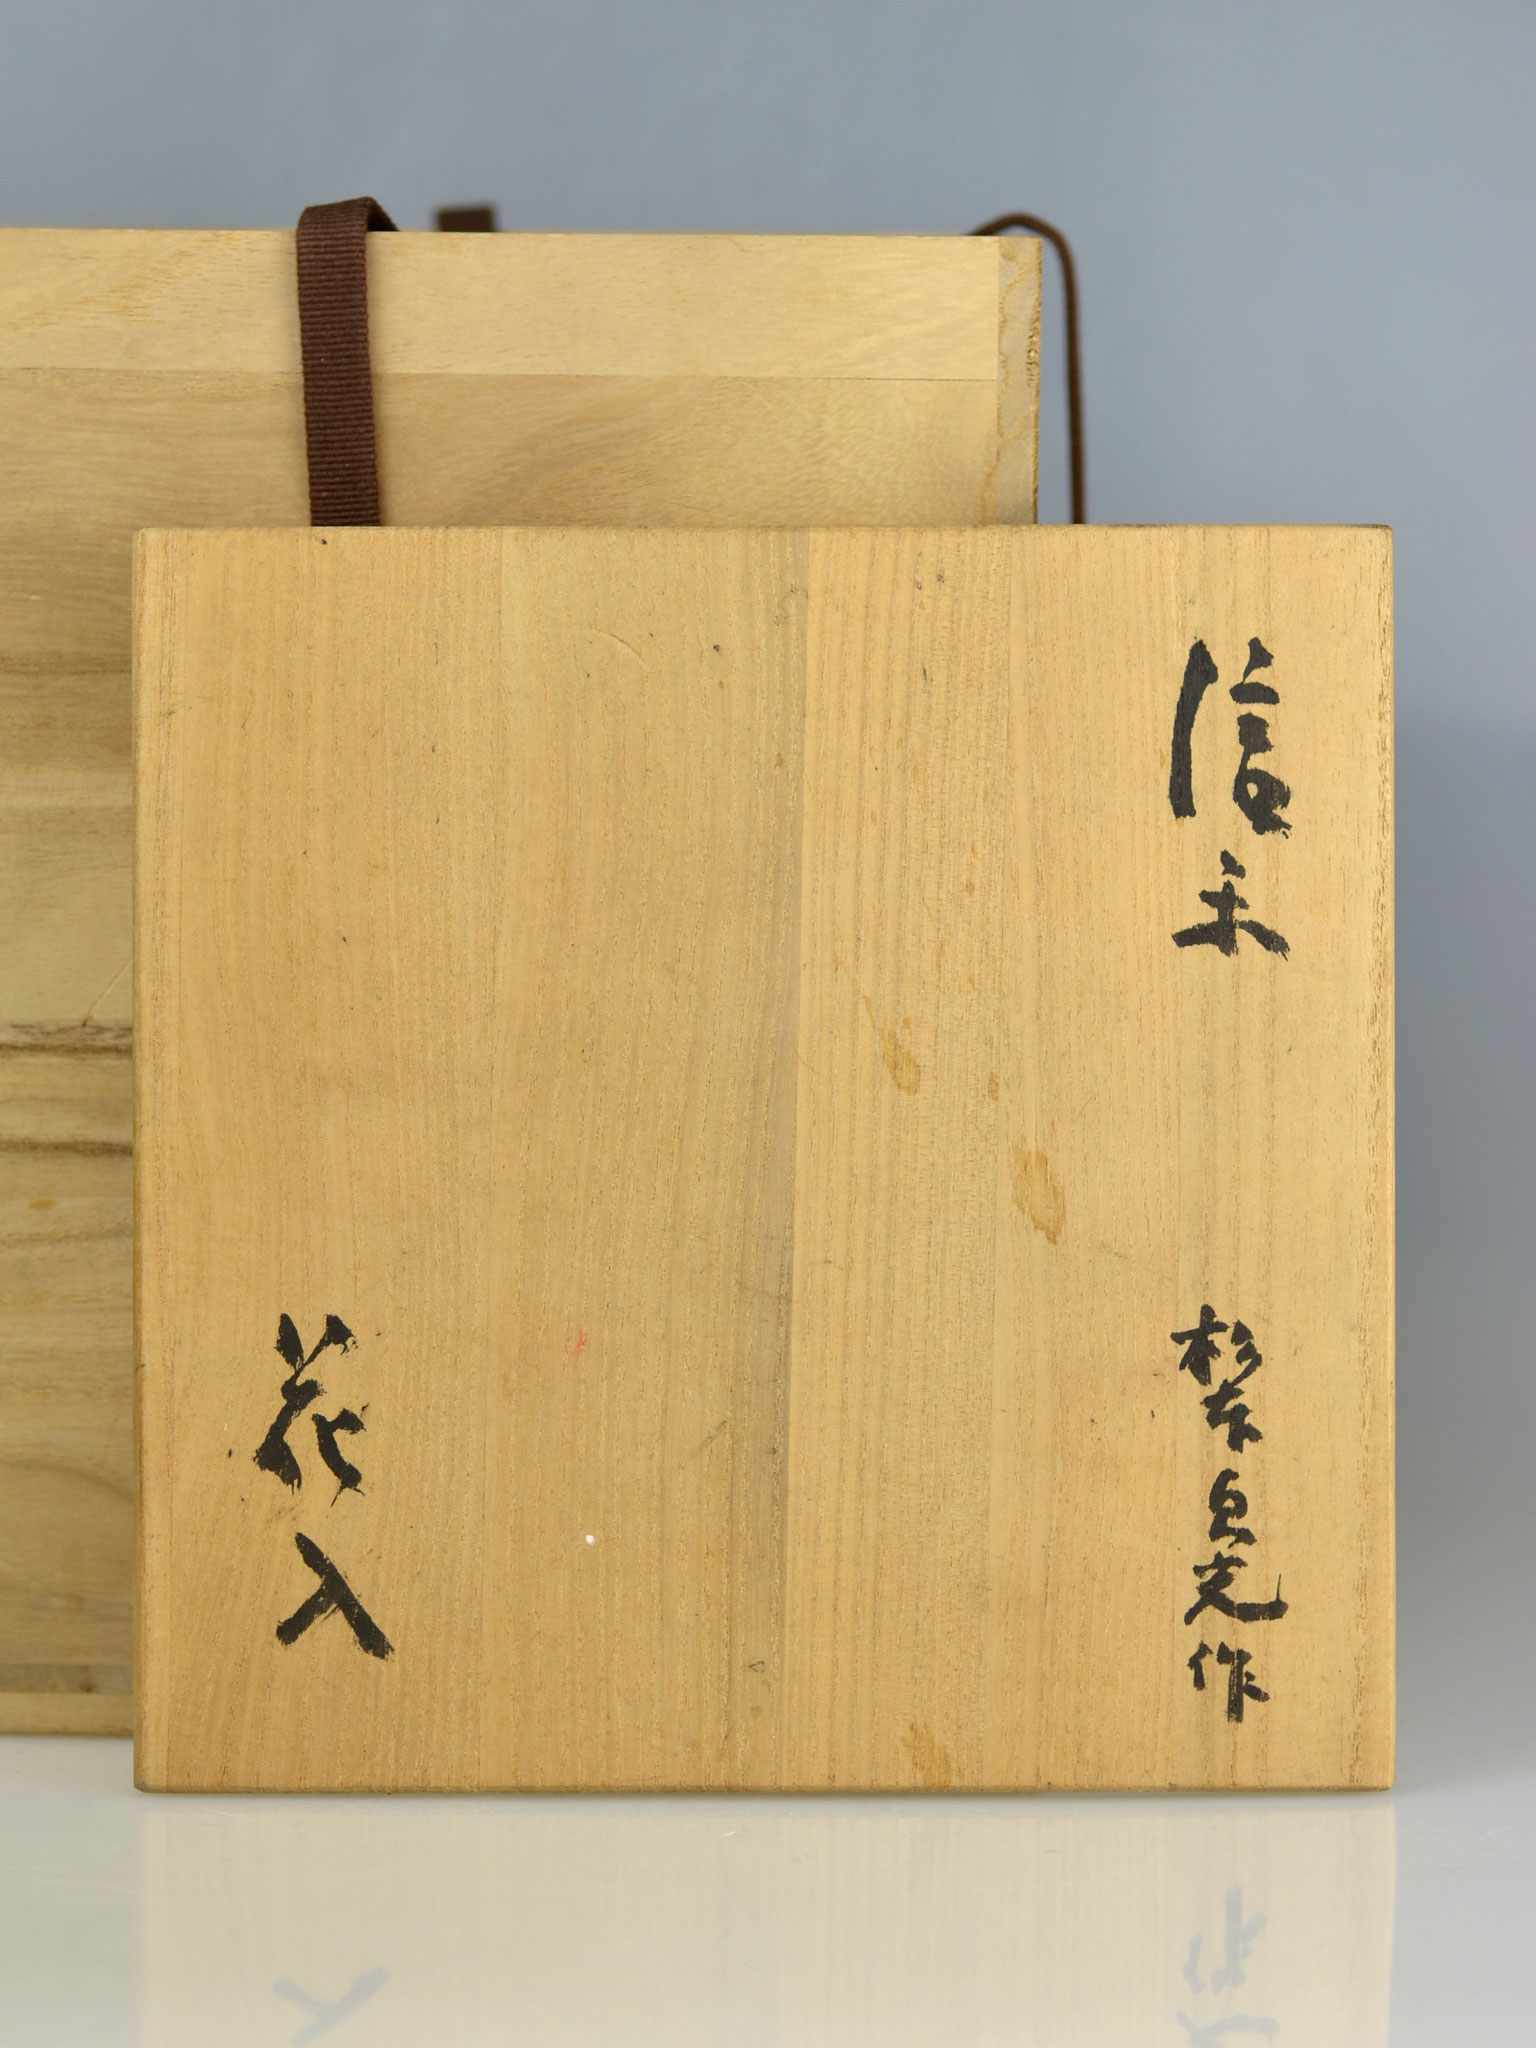 信楽
杉本貞光作
花入